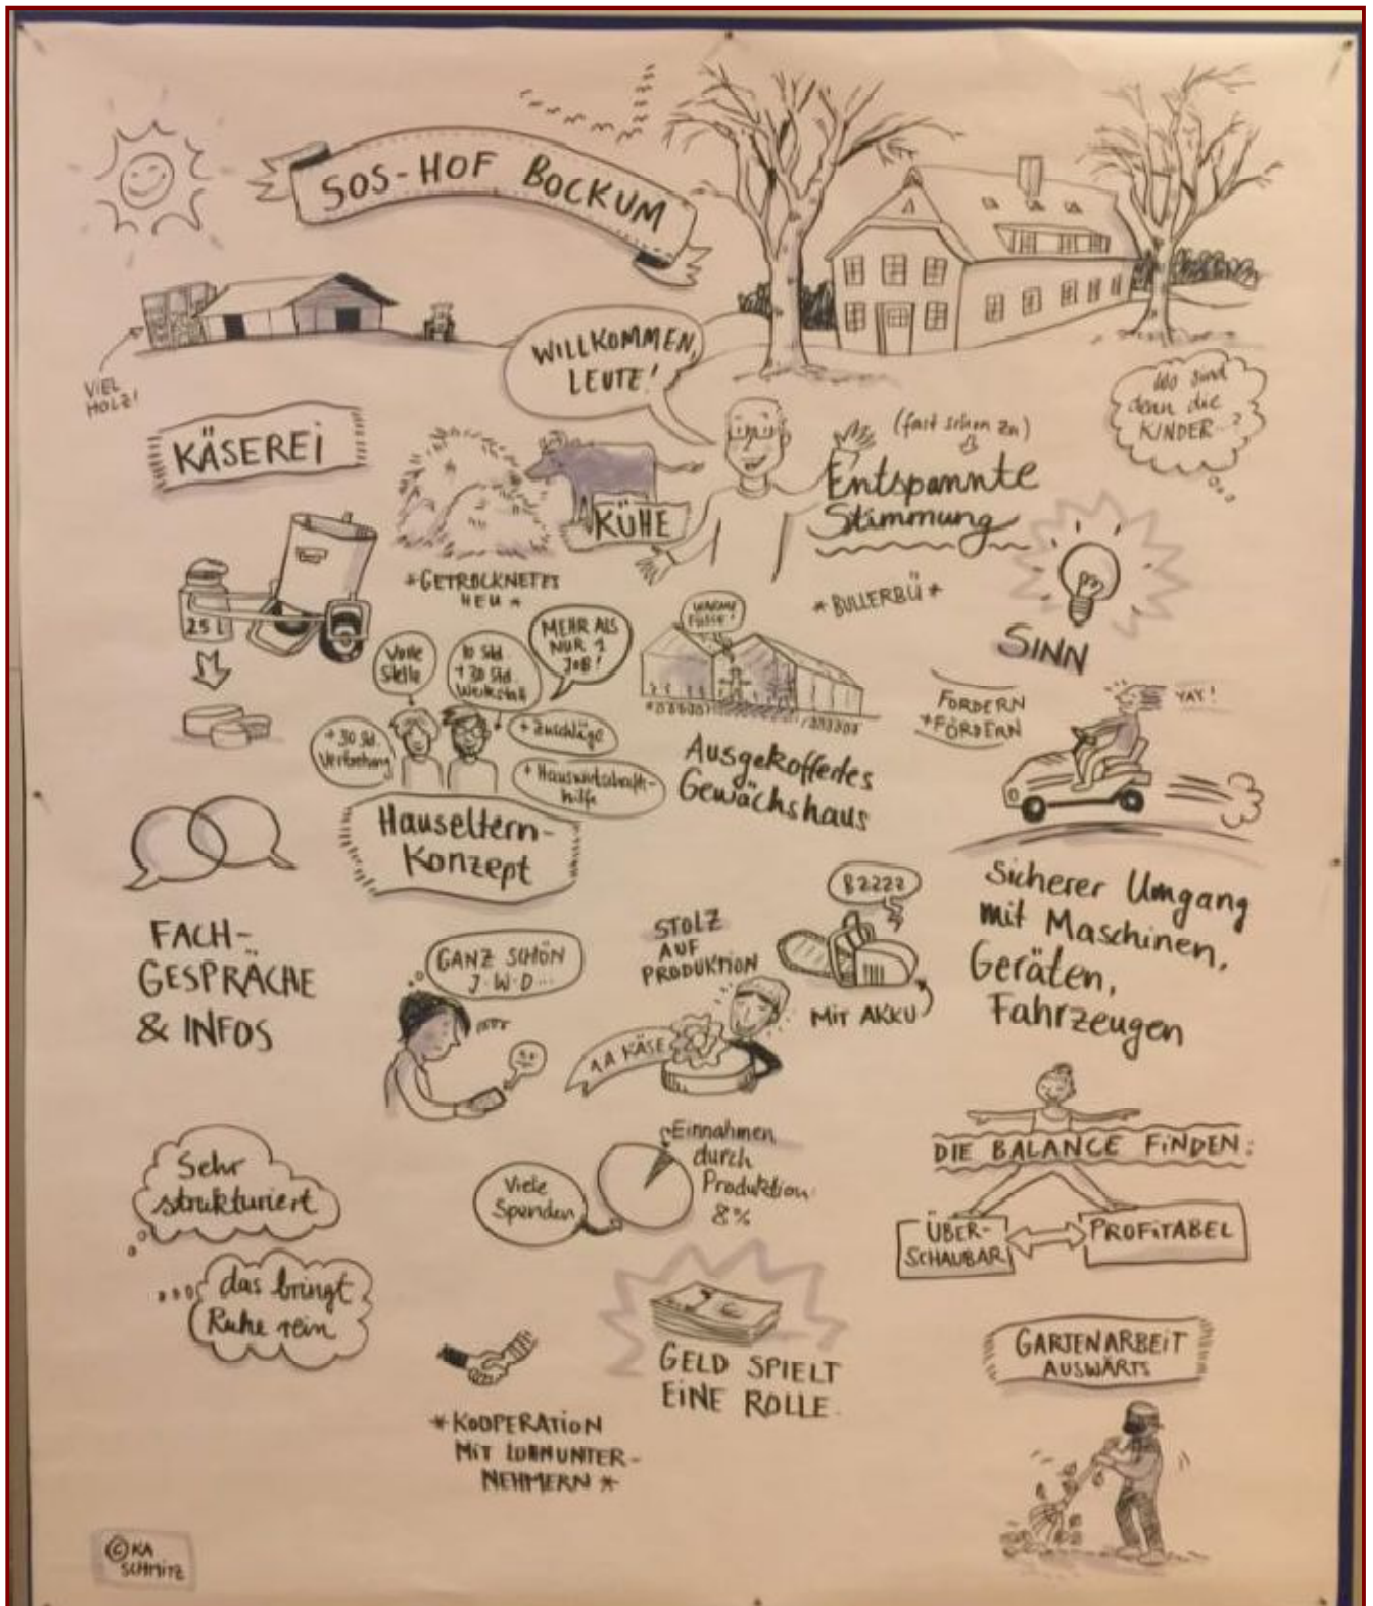 SOS-HOF BOCKUM
VIEL
HOLZ!
WILLKOMMEN,
LEUTE!
Wo sind
denn die
KINDER...?
KÄSEREI
KÜHE
*GETROCKNETES
HEU*
(fast schon zu)
Entspannte
Stimmung
*BULLERBÜ*
SINN
25 L
Volle
Stelle
10 Std.
+30 Std.
Werkstatt
MEHR ALS
NUR 1
JOB!
+30 Std.
Vertretung
+ Zuschläge
+ Hauswirtschafts-
hilfe
Hauseltern-
Konzept
WARME
FÜSSE!
Ausgekoffertes
Gewächshaus
FORDERN
+FÖRDERN
YAY!
Sicherer Umgang
mit Maschinen,
Geräten,
Fahrzeugen
FACH-
GESPRÄCHE
& INFOS
GANZ SCHÖN
J.W.D...
STOLZ
AUF
PRODUKTION
1A KÄSE
BZZZZ
MIT AKKU
Sehr
strukturiert
das bringt
Ruhe rein
Viele
Spenden
Einnahmen
durch
Produktion
8%
DIE BALANCE FINDEN:
ÜBER-
SCHAUBAR
PROFITABEL
GELD SPIELT
EINE ROLLE.
*KOOPERATION
MIT LOHNUNTER-
NEHMERN*
GARTENARBEIT
AUSWÄRTS
© KA
SCHMITZ